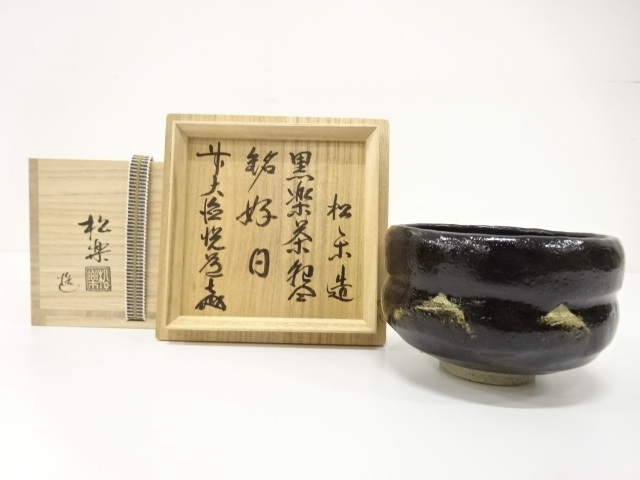 松楽造
黒楽茶碗
銘 好日
前大徳悦道(花押)
松楽
造